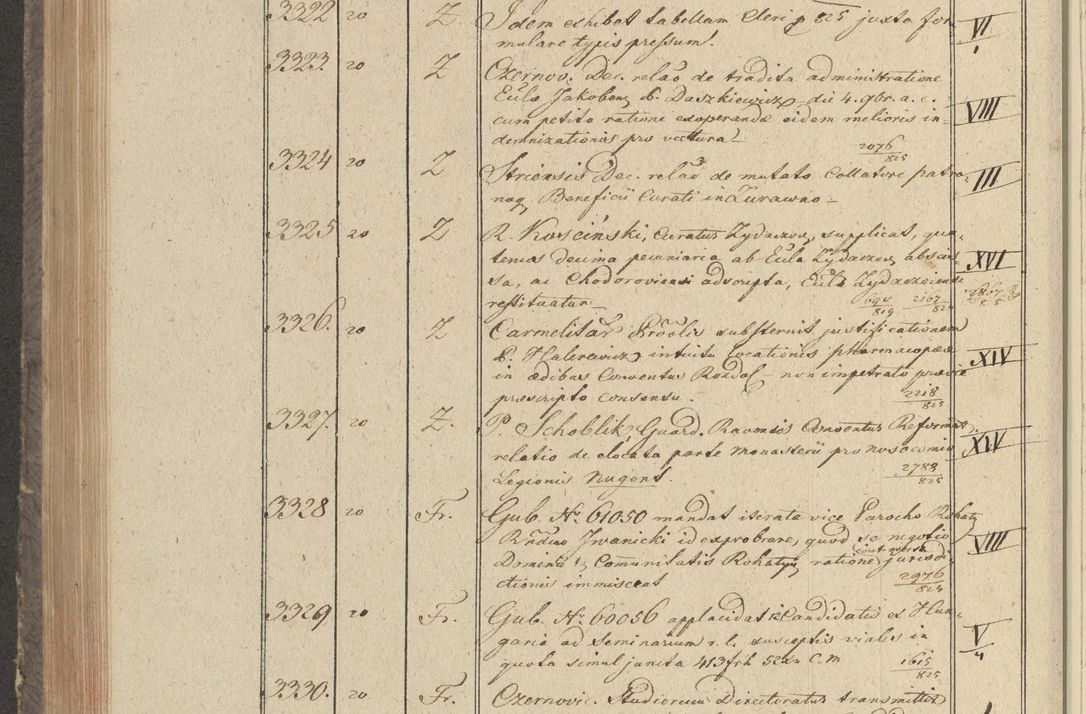 3322 20 Z Idem exhibet tabellam Cleri p 825 juxta for- VI
mulare typis pressum. 1
3323. 20 Z Czernov. Dec. relaõ de tradita administratione
Eccla Daszkiewicz die 4. 9br. a. c.
cum petito ratione melioris in- VIII
demnizationis pro vectura
2076/825
3324 20 Z Striensis Dec. relaõ de mutato Collatore patro- III
Beneficii Curati in Zurawno
3325 20 Z R. Kosciński, Curatus Zydaczov, supplicat, qua-
tenus decima pecuniaria ab Eccla Zydaczov abscis- XVI
sa, ac Chodoroviensi adscripta, Eccla Zydaczoviensi
restituatur
3326. 20 Z Carmelitar substernit justificationem
P. Halerewicz intuitu locationis pharmacopææ XIV
in ædibus Conventus Rozdol non impetrato
præscripto consensu. 2218/825
3327. 20 Z. P. Schoblik, Guard. Ravensis Conventus Reformat.
relatio de elocata parte monasterii pro nosocomio XIV
Legionis Nugent. 2783/825
3328 20 Fr. Gub. No. 61050 mandat iterata vice Parocho Rohaty
Iwanicki id exprobrare, quod se negotio VIII
Dominii & Comunitatis Rohatyn ratione controversa jurisdi-
ctionis immisceat 2976/824
3329 20 Fr. Gub. No. 60056 applacidat Candidatis ex Hun-
garia ad Seminarium r. l. susceptis viales in V
quota simul juncta 413 frh 52 xr C. M 4
1615/825
3330. 20 Fr. Czernovic. Studiorum Directoratus transmittit